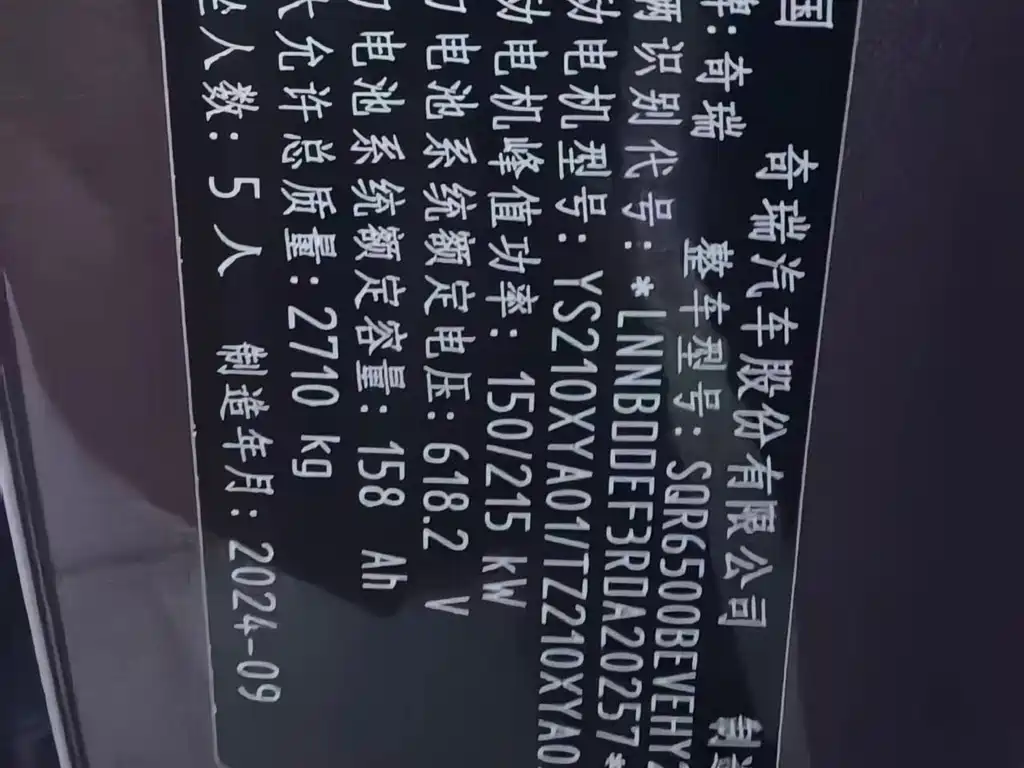 国
奇瑞汽车股份有限公司 制
牌:奇瑞 整车型号:SQR6500BEVEHY
辆识别代号:*LNNBDDEF3RDA20257*
动电机型号:YS210XYA01/TZ210XYA0
动电机峰值功率:150/215 kW
电池系统额定电压:618.2 V
力电池系统额定容量:158 Ah
大允许总质量:2710 kg
坐人数:5人 制造年月:2024-09